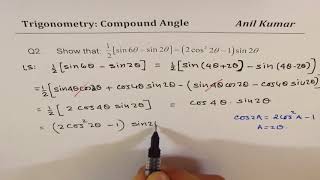 Trigonometry: Compound Angle Anil Kumar
Q2 Show that: ½[sin6θ − sin2θ] = (2cos²2θ − 1)sin2θ
LS: ½[sin6θ − sin2θ] = ½[sin(4θ+2θ) − sin(4θ−2θ)]
= ½[sin4θcos2θ + cos4θ sin2θ − (sin4θcos2θ − cos4θ sin2θ)]
= ½[2 cos4θ sin2θ] = cos4θ · sin2θ
= (2cos²2θ − 1) sin2
cos2A = 2cos²A − 1
A = 2θ